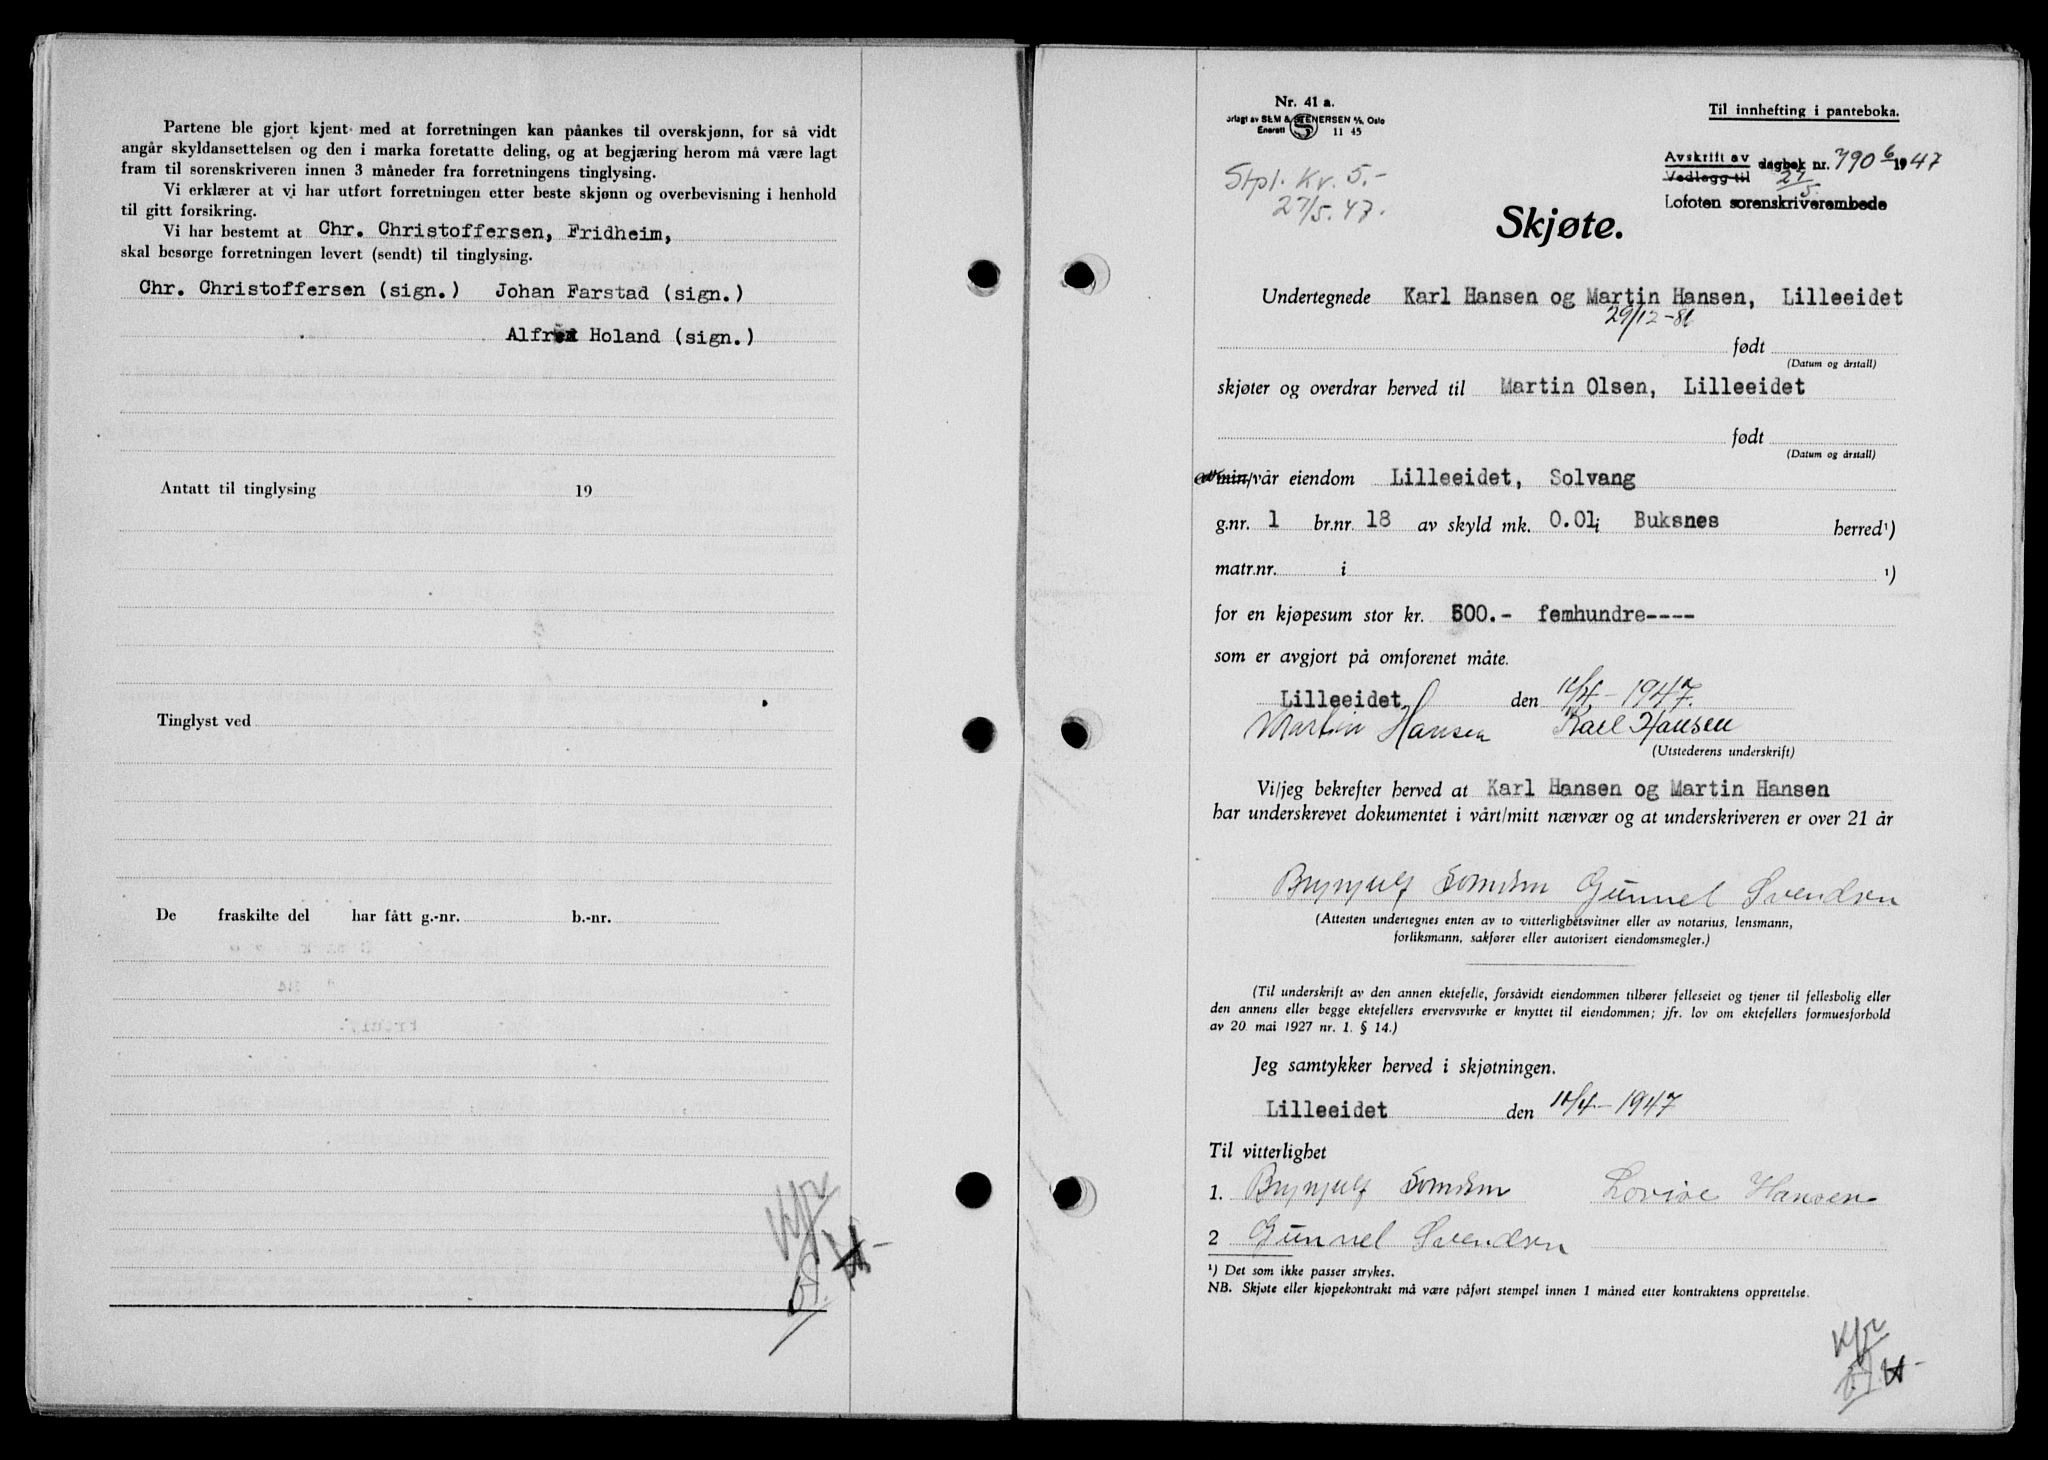 Partene ble gjort kjent med at forretningen kan påankes til overskjønn, for så vidt
angår skyldansettelsen og den i marka foretatte deling, og at begjæring herom må være lagt
fram til sorenskriveren innen 3 måneder fra forretningens tinglysing.
Vi erklærer at vi har utført forretningen etter beste skjønn og overbevisning i henhold
til gitt forsikring.
Vi har bestemt at Chr. Christoffersen, Fridheim,
skal besørge forretningen levert (sendt) til tinglysing.
Chr. Christoffersen (sign.) Johan Farstad (sign.)
Alfred Holand (sign.)
Antatt til tinglysing 19
Tinglyst ved
De fraskilte del har fått g.-nr. b.-nr.
Nr. 41 a.
orlagt av SEM & STENERSEN A/S, Oslo
Enerett S 11 45
Til innhefting i panteboka.
Stpl. Kr. 5.-
27/5.47.
Avskrift av
Vedlagg til dagbok nr. 790 6 1947
27/5.
Lofoten sorenskriverembede
Skjøte.
Undertegnede Karl Hansen og Martin Hansen, Lilleeidet
29/12-81
født
(Datum og årstall)
skjøter og overdrar herved til Martin Olsen, Lilleeidet
født
(Datum og årstall)
min/vår eiendom Lilleeidet, Solvang
g.nr. 1 br.nr. 18 av skyld mk. 0.01 i Buksnes herred¹)
matr.nr. i ¹)
for en kjøpesum stor kr. 500.- femhundre----
som er avgjort på omforenet måte.
Lilleeidet den 10/4-1947.
Martin Hansen Karl Hansen
(Utstederens underskrift)
Vi/jeg bekrefter herved at Karl Hansen og Martin Hansen
har underskrevet dokumentet i vårt/mitt nærvær og at underskriveren er over 21 år
Brynjulf Gunnel Svendsen
(Attesten undertegnes enten av to vitterlighetsvitner eller av notarius, lensmann,
forliksmann, sakfører eller autorisert eiendomsmegler.)
(Til underskrift av den annen ektefelle, forsåvidt eiendommen tilhører felleseiet og tjener til fellesbolig eller
den annens eller begge ektefellers ervervsvirke er knyttet til eiendommen; jfr. lov om ektefellers formuesforhold
av 20 mai 1927 nr. 1. § 14.)
Jeg samtykker herved i skjøtningen.
Lilleeidet den 10/4-1947
Til vitterlighet
1. Brynjulf Lovise Hansen
2 Gunnel Svendsen
¹) Det som ikke passer strykes.
NB. Skjøte eller kjøpekontrakt må være påført stempel innen 1 måned etter kontraktens opprettelse.